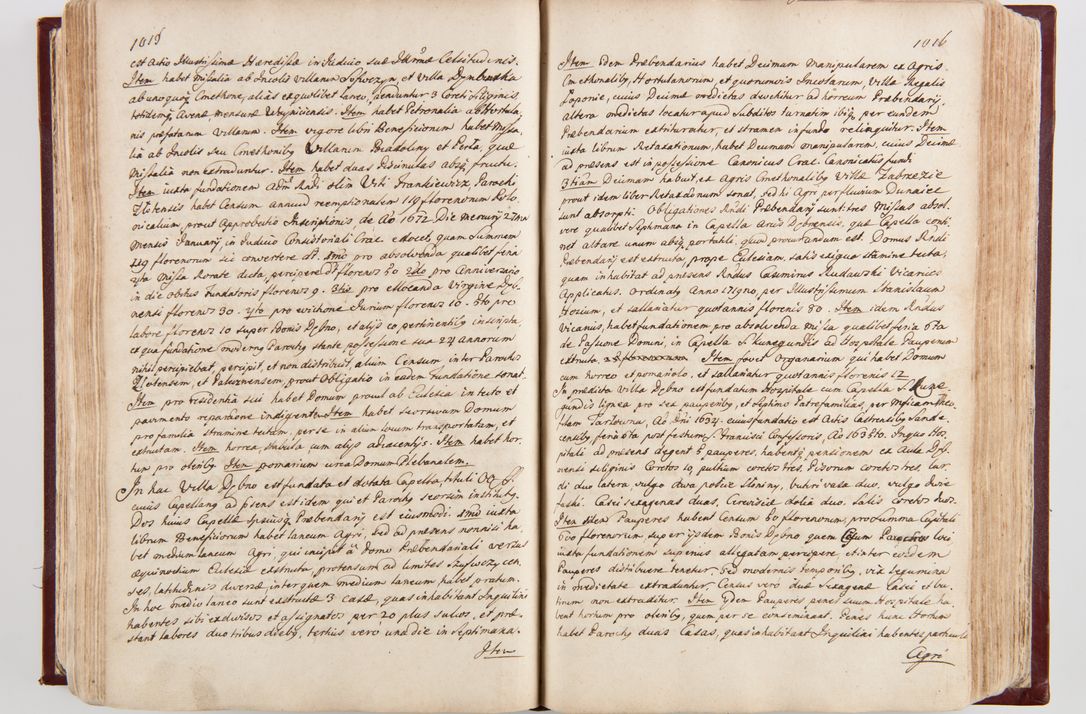 1015
est Actio Illustrissimæ Hæredissæ in Judicio suæ Celsitudinis.
Item habet Missalia ab Incolis villarum et villa
ab unoquoque Cmethone, alias ex quolibet Laneo, seruntur 3 Coreti Siliginis,
totidemque Avenæ mensuræ Item habet Petronalia ab Hortula-
nis præfatarum Villarum. Item vigore libri Beneficiorum habet Missa-
lia ab Incolis seu Cmethonibus Villarum Biadoliny et Perla, quæ
Missalia non extraduntur. Item habet duas Piscinulas absque fructu.
Item iuxta fundationem Admodum Rndi olim Viti Frankiewicz Parochi
Zlotensis habet Censum annuum reemptionalem 119 florenorum Polo-
nicalium, prout Approbatio Inscriptionis de Ao 1672 Die Mercurij 27ma
Mensis Januarij, in Judicio Consistoriali Crac. edocet, quam Summam
119 florenorum sic convertere dt. 1mo pro absolvenda qualibet feria
Missa Rorate dicta, percipere dt florenos 50 2do pro Anniversario
in die obitus Fundatoris florenos 9. 3tio pro edocenda Virgine Dęb-
nensi florenos 30. 4to pro Iurium florenos 10. 5to pro
labore florenos 10 super Bonis Dębno, et alijs eo pertinentibus inscripta,
ex qua fundatione modernus Parochus stante possessione sua 24 annorum
nihil percipiebat, percipit, et non distribuit, alium Censum inter Parochos
Zlotensem, et prout Obligatio in eadem Fundatione sonat.
Item pro residentia sui habet Domum prout ab Ecclesia in tecto et
pavimento reparatione indigente. Item habet seorsivum Domum
pro familia stramine tectam, per se in alium locum transportatam, et
extructam. Item horrea, stabula cum alijs adiacentijs. Item habet hor-
tum pro oleribus Item pomarium circa Domum Plebanalem.
In hac Villa Dębno est fundata et dotata Capella, tituli OO. SS.
cuius Capellanus a piens est idem qui et Parochus seorsim institutus.
Dos huius Capellæ ipsiusque Præbendarij est eiusmodi. 1mo iuxta
librum Beneficiorum habet laneum Agri, sed ad præsens nonnisi ha-
bet medium laneum Agri, qui incipit a Domo Præbendariali versus
æquinoctium Ecclesiæ extructa, protensum ad limites cen-
ses, latitudinis diversæ, inter quem medium laneum habet pratum.
In hoc medio laneo sunt exstructæ 3 casæ, quas inhabitant Inquilini
habentes sibi exdivisos et assignatos per 20 plus sulcos, et præ-
stant labores duo tribus diebus, tertius vero una die in septimana.
Item

1016
Item Idem Præbendarius habet Decimam Manipularem ex Agris
Cmethonalibus, Hortulanorum, et quorumvis Incolarum, Villæ Regalis
Loponie, cuius Decimæ medietas devehitur ad horreum Præbendarij,
altera medietas locatur apud Subditos turnatim ibique per eundem
Præbendarium extrituratur, et stramen in fundo relinquitur. Item
iuxta librum Retaxationum, habet Decimam manipularem, cuius Decimæ
ad præsens est in possessione Canonicus Crac. Canonicatus fundi
3tiam Decimam habuit, ex Agris Cmethonalibus Villæ Zabrzezie
prout idem liber Retaxationum sonat, sed hi Agri per fluvium Dunaiec
sunt absorpti. Obligationes Rndi Præbendarij sunt tres Missas absol-
vere qualibet Septimana in Capella Arcis Dębnensis, quæ Capella conti-
net altare unum absque portatili, quod procurandum est. Domus Rndi
Præbendarij est extructa, prope Ecclesiam, satis exigua stramine tecta,
quam inhabitat ad præsens Rndus Casimirus Rudawski Vicarius
Applicatus. Ordinatus Anno 1719no, per Illustrissimum Stanislaum
Hosium, et sallariatur quotannis florenis 80. Item idem Rndus
Vicarius, habet fundationem pro absolvenda Missa qualibet feria 6ta
de Passione Domini, in Capella S. Kunegundis ad Hospitale Pauperum
extructa. Item fovet Organarium qui habet Domum
cum horreo et pomariolo, et sallariatur quotannis florenis 12.
In prædicta Villa Dębno est fundatum Hospitale cum Capella S. Kune-
gundis lignea pro sex pauperibus, et Septimo Patrefamilias, per
Tarlowna, Ao Dni 1634. cuius fundatio est Actis Castrensibus Sande-
censibus, feria 6ta post festum S. Francisci Confessoris, Ao 1635to. Inque Hos-
pitali ad præsens degent 6 pauperes, habentque pensionem ex Aula Dęb-
nensi siliginis Coretos 10, pultium coretos tres, Pisorum coretos tres, lar-
di duo latera, vulgo dwa połcie Słoniny, butiri vasa duo, vulgo dwie
faski. Casei sexagenas duas, Cerevisiæ dolia duo. Salis coretos duos.
Item Iidem Pauperes habent Censum 60 florenorum, pro Summa Capitali
600 florenorum super ijsdem Bonis Dębno quem Censum Parochus loci
iuxta fundationem superius allegatam percipere, et inter eosdem
Pauperes distribuere tenetur. Sed modernis temporibus, vix legumina
in medietate extraduntur, Census vero duæ sexagenæ Casei et bu-
tirum non extraditur. Item Iidem Pauperes penes suum Hospitale ha-
bent hortum pro oleribus, quem per se conseminant. Penes hunc Hortum
habet Parochus duas Casas, quas inhabitant Inquilini habentes particulas
Agri